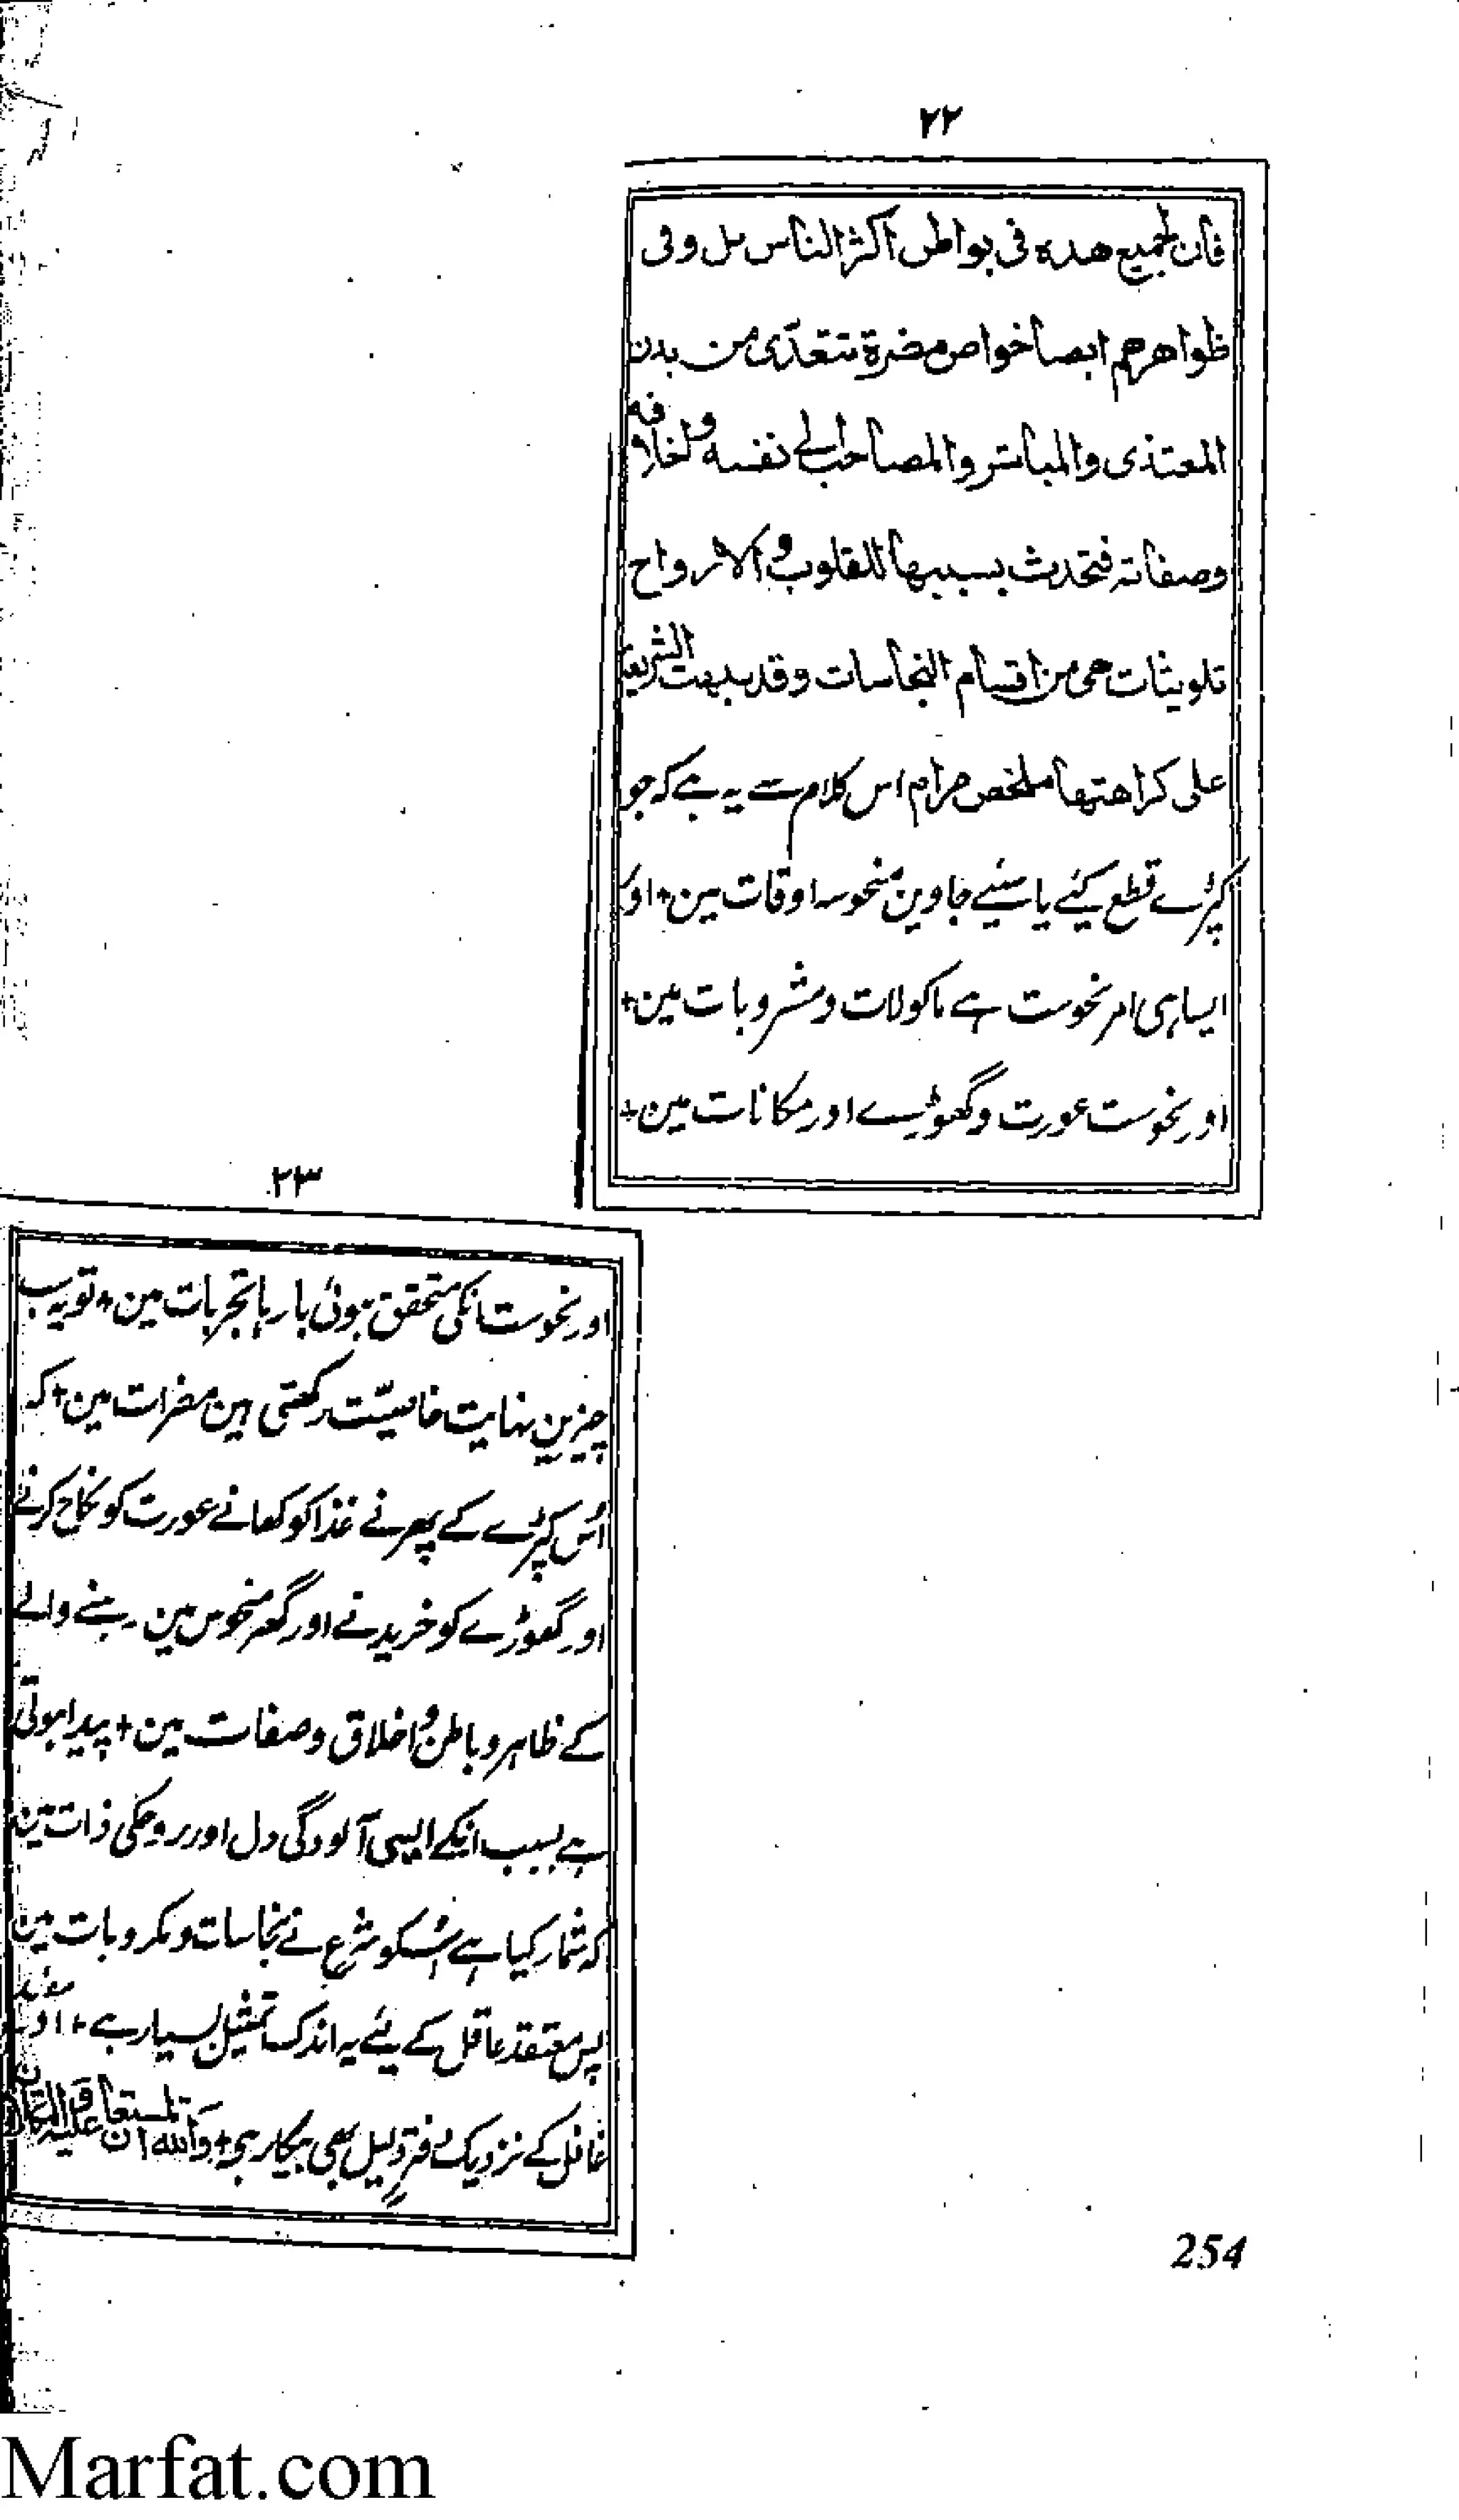 ۲۲
فان لجميع هذه فی بواطن اكثر الناس بل وفی
ظواهرهم ايضا خواص مضرة تتعدّی من بدن
المغتذی والمباشر والمصاحب الی نفسه واخلاقه
وصفاته فتحدث بسببها للقلوب والارواح
تلويثات هی من اقسام النجاسات وقد نبهت الشريعة
علی كراهتها ملخص مرام اس کلام سے یہ ہے کہ جو
کپڑے قطع کیئے یا سیئے جاوین منحوس اوقات مین + اور
ایسا ہی امر نحوست ہے ماکولات و مشروبات مین +
اور نحوست عورت و گھوڑیسے اور مکانات مین +
۲۳
اور نحوست انکی متحقق ہوئی بارہا تجربات مین + تو یہ سب
چیزین نہایت خاصیّت رکھتی ہین مضرات مین + کہ
اُس کپڑے کے پہرنے غذا کو کھانے عورت کو نکاح کرنے
اور گھوڑے کو خریدنے اور گھر منحوس مین رہنے والے
کے ظاہر و باطن و اخلاق و صفات مین + پیدا ہوتی
ہے بسبب انکے ایسی آلودگی دل اور روحکی ذات مین
کہ شمار کیا ہے اسکو شرع نے نجاسات و مکروہات مین
پس معتقد عاقل کے لیئے یہ اندک تمثیل بسیار ہے + اور
غافل کے نزدیک دفتر دلیل بھی بیکار ہی + والله المستعان وعليه التكلان
254
Marfat.com